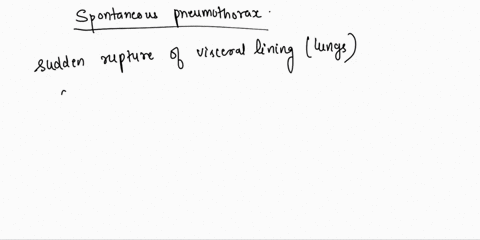 Spontaneous pneumothorax.
sudden rupture of visceral lining (lungs)